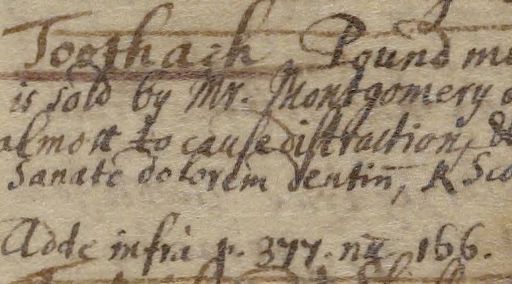 Toothach Pound m
is sold by Mr. Montgomery
almost to cause distraction, &
Sanate dolorem dentiũ, R Sc
Adde infrà p. 377. nũ 166.